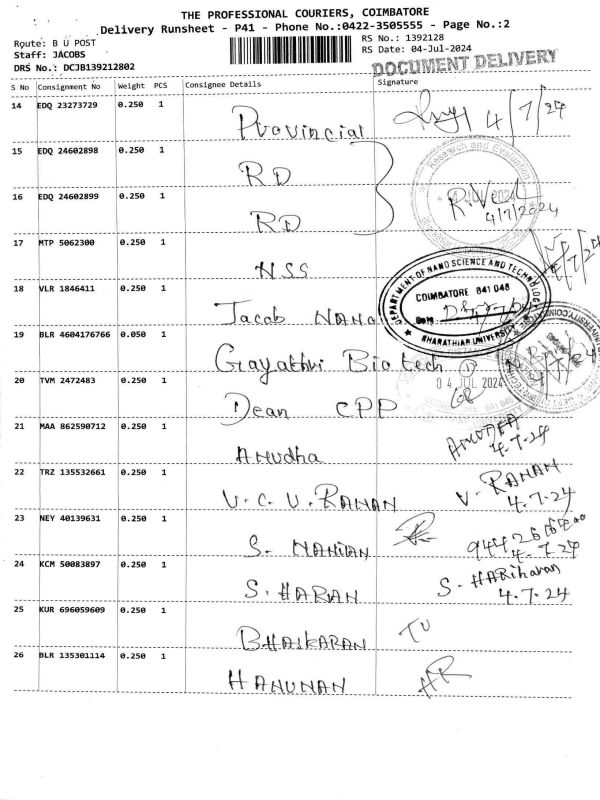 THE PROFESSIONAL COURIERS, COIMBATORE
Delivery Runsheet - P41 - Phone No.:0422-3505555 - Page No.:2
Route: B U POST
Staff: JACOBS
DRS No.: DCJB139212802
RS No.: 1392128
RS Date: 04-Jul-2024
DOCUMENT DELIVERY
S No Consignment No Weight PCS Consignee Details Signature
14 EDQ 23273729 0.250 1 Provincial 4/7/24
15 EDQ 24602898 0.250 1 RD
Research and Evaluation
JUL 2024
16 EDQ 24602899 0.250 1 RD 4/7/2024
17 MTP 5062300 0.250 1 NSS
DEPARTMENT OF NANO SCIENCE AND TECHNOLOGY
COIMBATORE 641 046
BHARATHIAR UNIVERSITY
18 VLR 1846411 0.250 1 Jacob NANO
19 BLR 4604176766 0.050 1 Gayathri Biotech
04 JUL 2024
20 TVM 2472483 0.250 1 Dean CPP
21 MAA 862590712 0.250 1 ANUdha 4.7.24
22 TRZ 135532661 0.250 1 V.C.V.RANAN V. RANAN
4.7.24
23 NEY 40139631 0.250 1 S. NANIDAN
4.7.24
24 KCM 50083897 0.250 1 S. HARAN S. HARiharan
4.7.24
25 KUR 696059609 0.250 1 BHASKARAN
26 BLR 135301114 0.250 1 HANUNAN HR